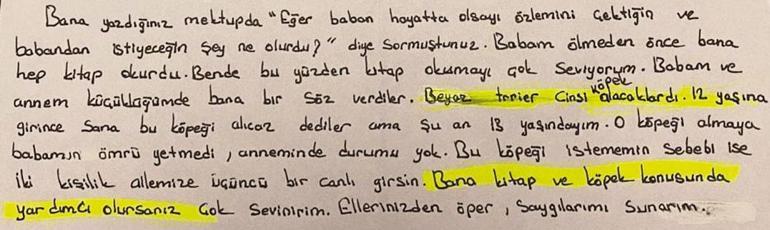 Bana yazdığınız mektupda "Eğer baban hayatta olsayı özlemini çektiğin ve
babandan istiyeceğin şey ne olurdu?" diye sormuştunuz. Babam ölmeden önce bana
hep kitap okurdu. Bende bu yüzden kitap okumayı çok seviyorum. Babam ve
annem küçüklüğümde bana bir söz verdiler. Beyaz tarier cinsi köpek alacaklardı. 12 yaşına
girince sana bu köpeği alıcaz dediler ama şu an 13 yaşındayım. O köpeği almaya
babamın ömrü yetmedi, anneminde durumu yok. Bu köpeği istememin sebebi ise
iki kişilik ailemize üçüncü bir canlı girsin. Bana kitap ve köpek konusunda
yardımcı olursanız çok sevinirim. Ellerinizden öper, saygılarımı sunarım.